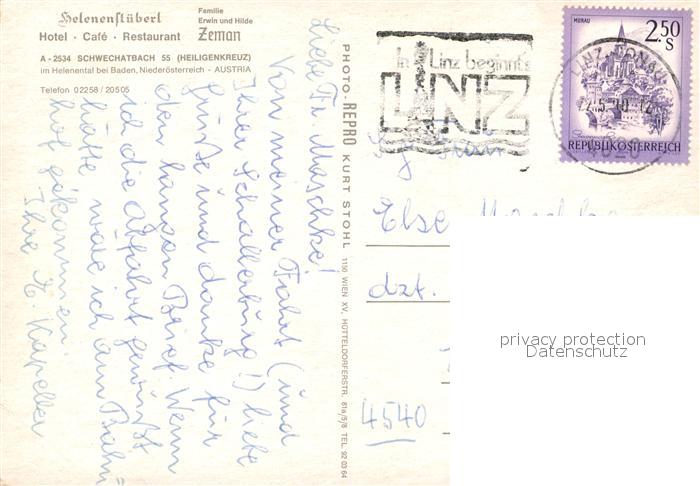 Helenenstüberl
Hotel · Café · Restaurant
Familie
Erwin und Hilde
Zeman
A - 2534 SCHWECHATBACH 55 (HEILIGENKREUZ)
im Helenental bei Baden, Niederösterreich - AUSTRIA
Telefon 02258 / 20505
Liebe Fr. Maschke!
Von meiner Fahrt (und
Ihrer Schallaburg!) liebe
Grüße und danke für
den langen Brief. Wenn
ich die Abfahrt gewußt
hätte wäre ich am Bahn=
hof gekommen.
Ihre H. Kapeller
PHOTO-REPRO KURT STOHL 1150 WIEN XV, HÜTTELDORFERSTR. 81a/5/8 TEL. 92 03 64
In Linz beginnt's
LINZ
MURAU
2.50
S
REPUBLIK ÖSTERREICH
LINZ-DONAU
Frau
Else
dzt.
4540
privacy protection
Datenschutz